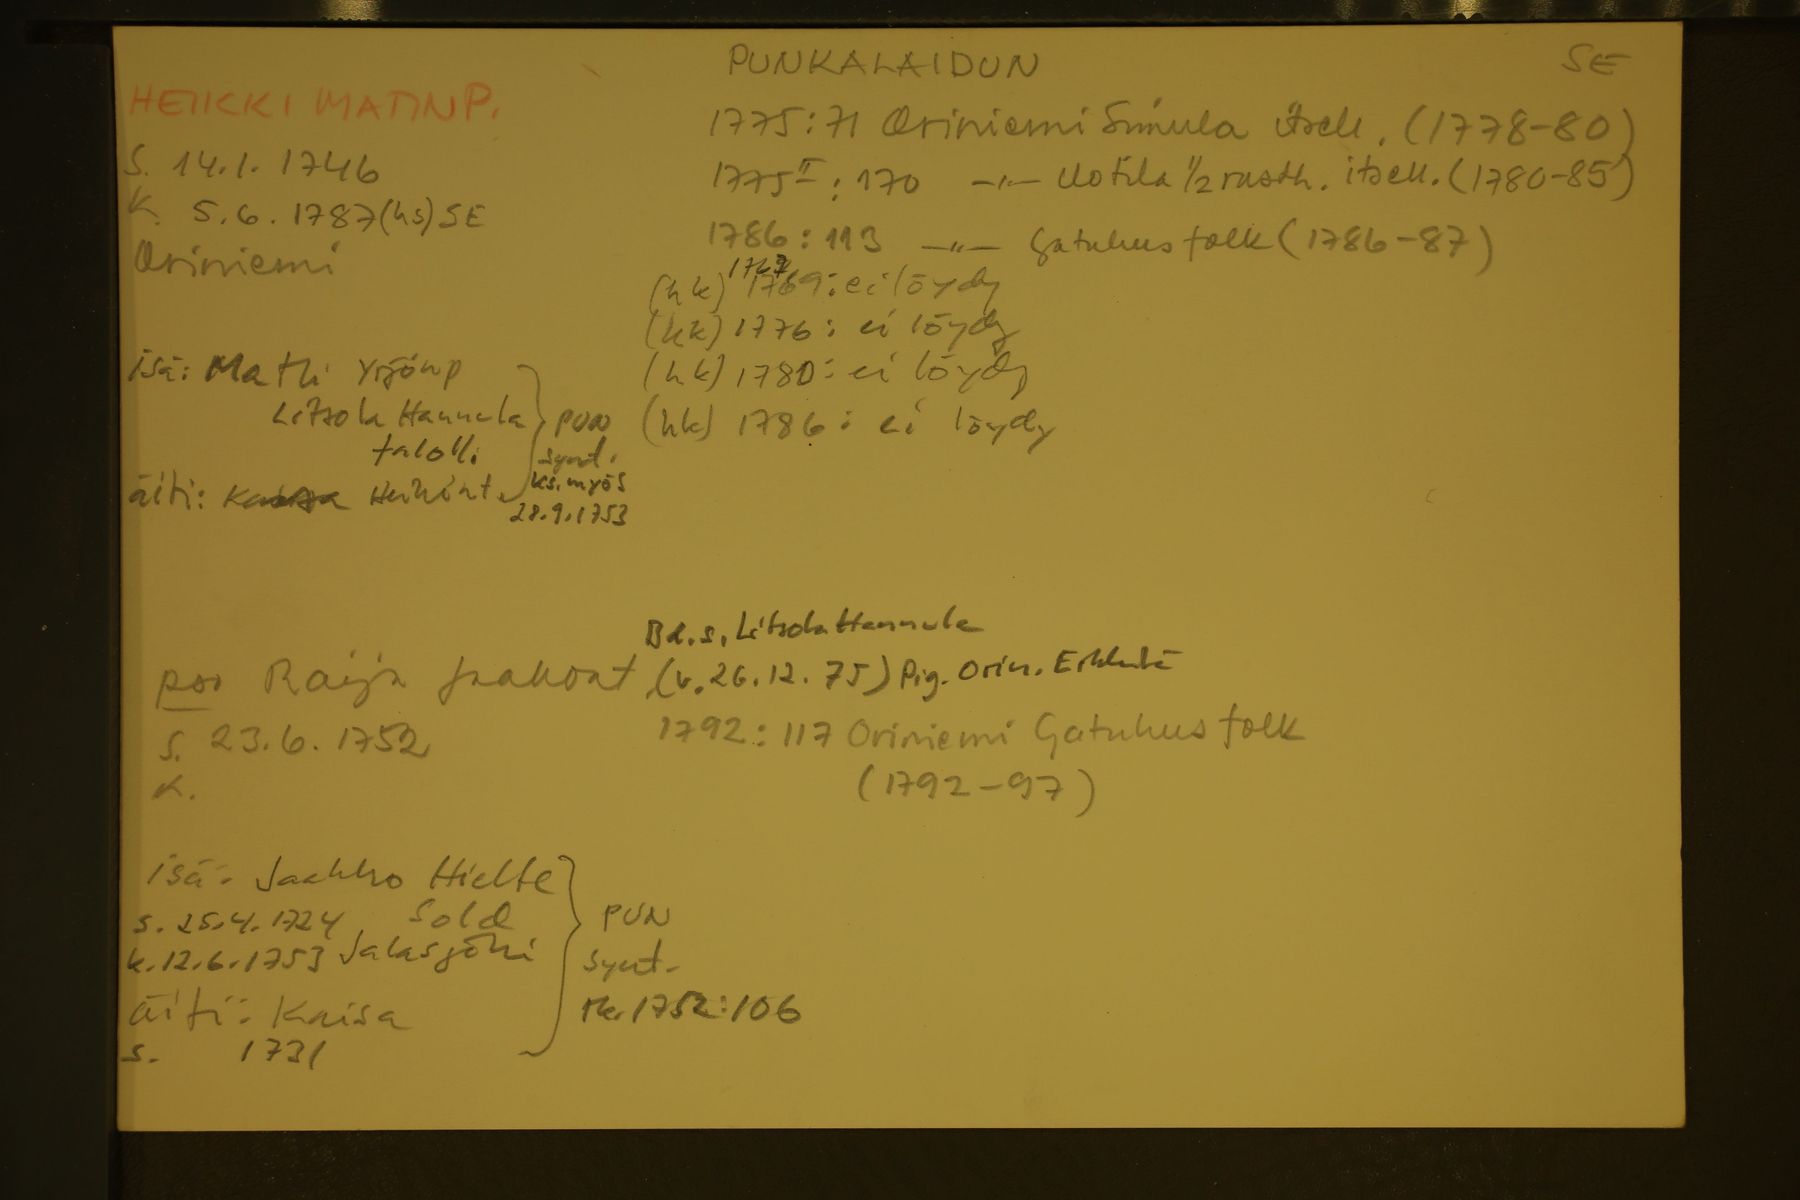 PUNKALAIDUN
SE
HEIKKI MATINP.
S. 14.1.1746
K. 5.6.1787(hs) SE
Oriniemi
1775:71 Oriniemi Simula itsell. (1778-80)
1775 II : 170 -"- Uotila 1/2 rusth. itsell. (1780-85)
1786 : 113 -"- Gatuhusfolk (1786-87)
1767
(hk) 1769: ei löydy
(hk) 1776: ei löydy
(hk) 1780: ei löydy
(hk) 1786: ei löydy
isä: Matti Yrjönp
Litsola Hannula
talolli.
äiti: Kaisa Heikint.
PUN
synt.
ks. myös
28.9.1753
Bd.s. Litsola Hannula
pso Raija Jaakont. (v. 26.12.75) Pig. Orin. Erkkilä
S. 23.6.1752
K.
1792:117 Oriniemi Gatuhusfolk
(1792-97)
isä: Jaakko Hielte
s. 25.4.1724 Sold
k. 12.6.1753 Jalasjöki
äiti: Kaisa
s. 1731
PUN
synt.
rk. 1752:106